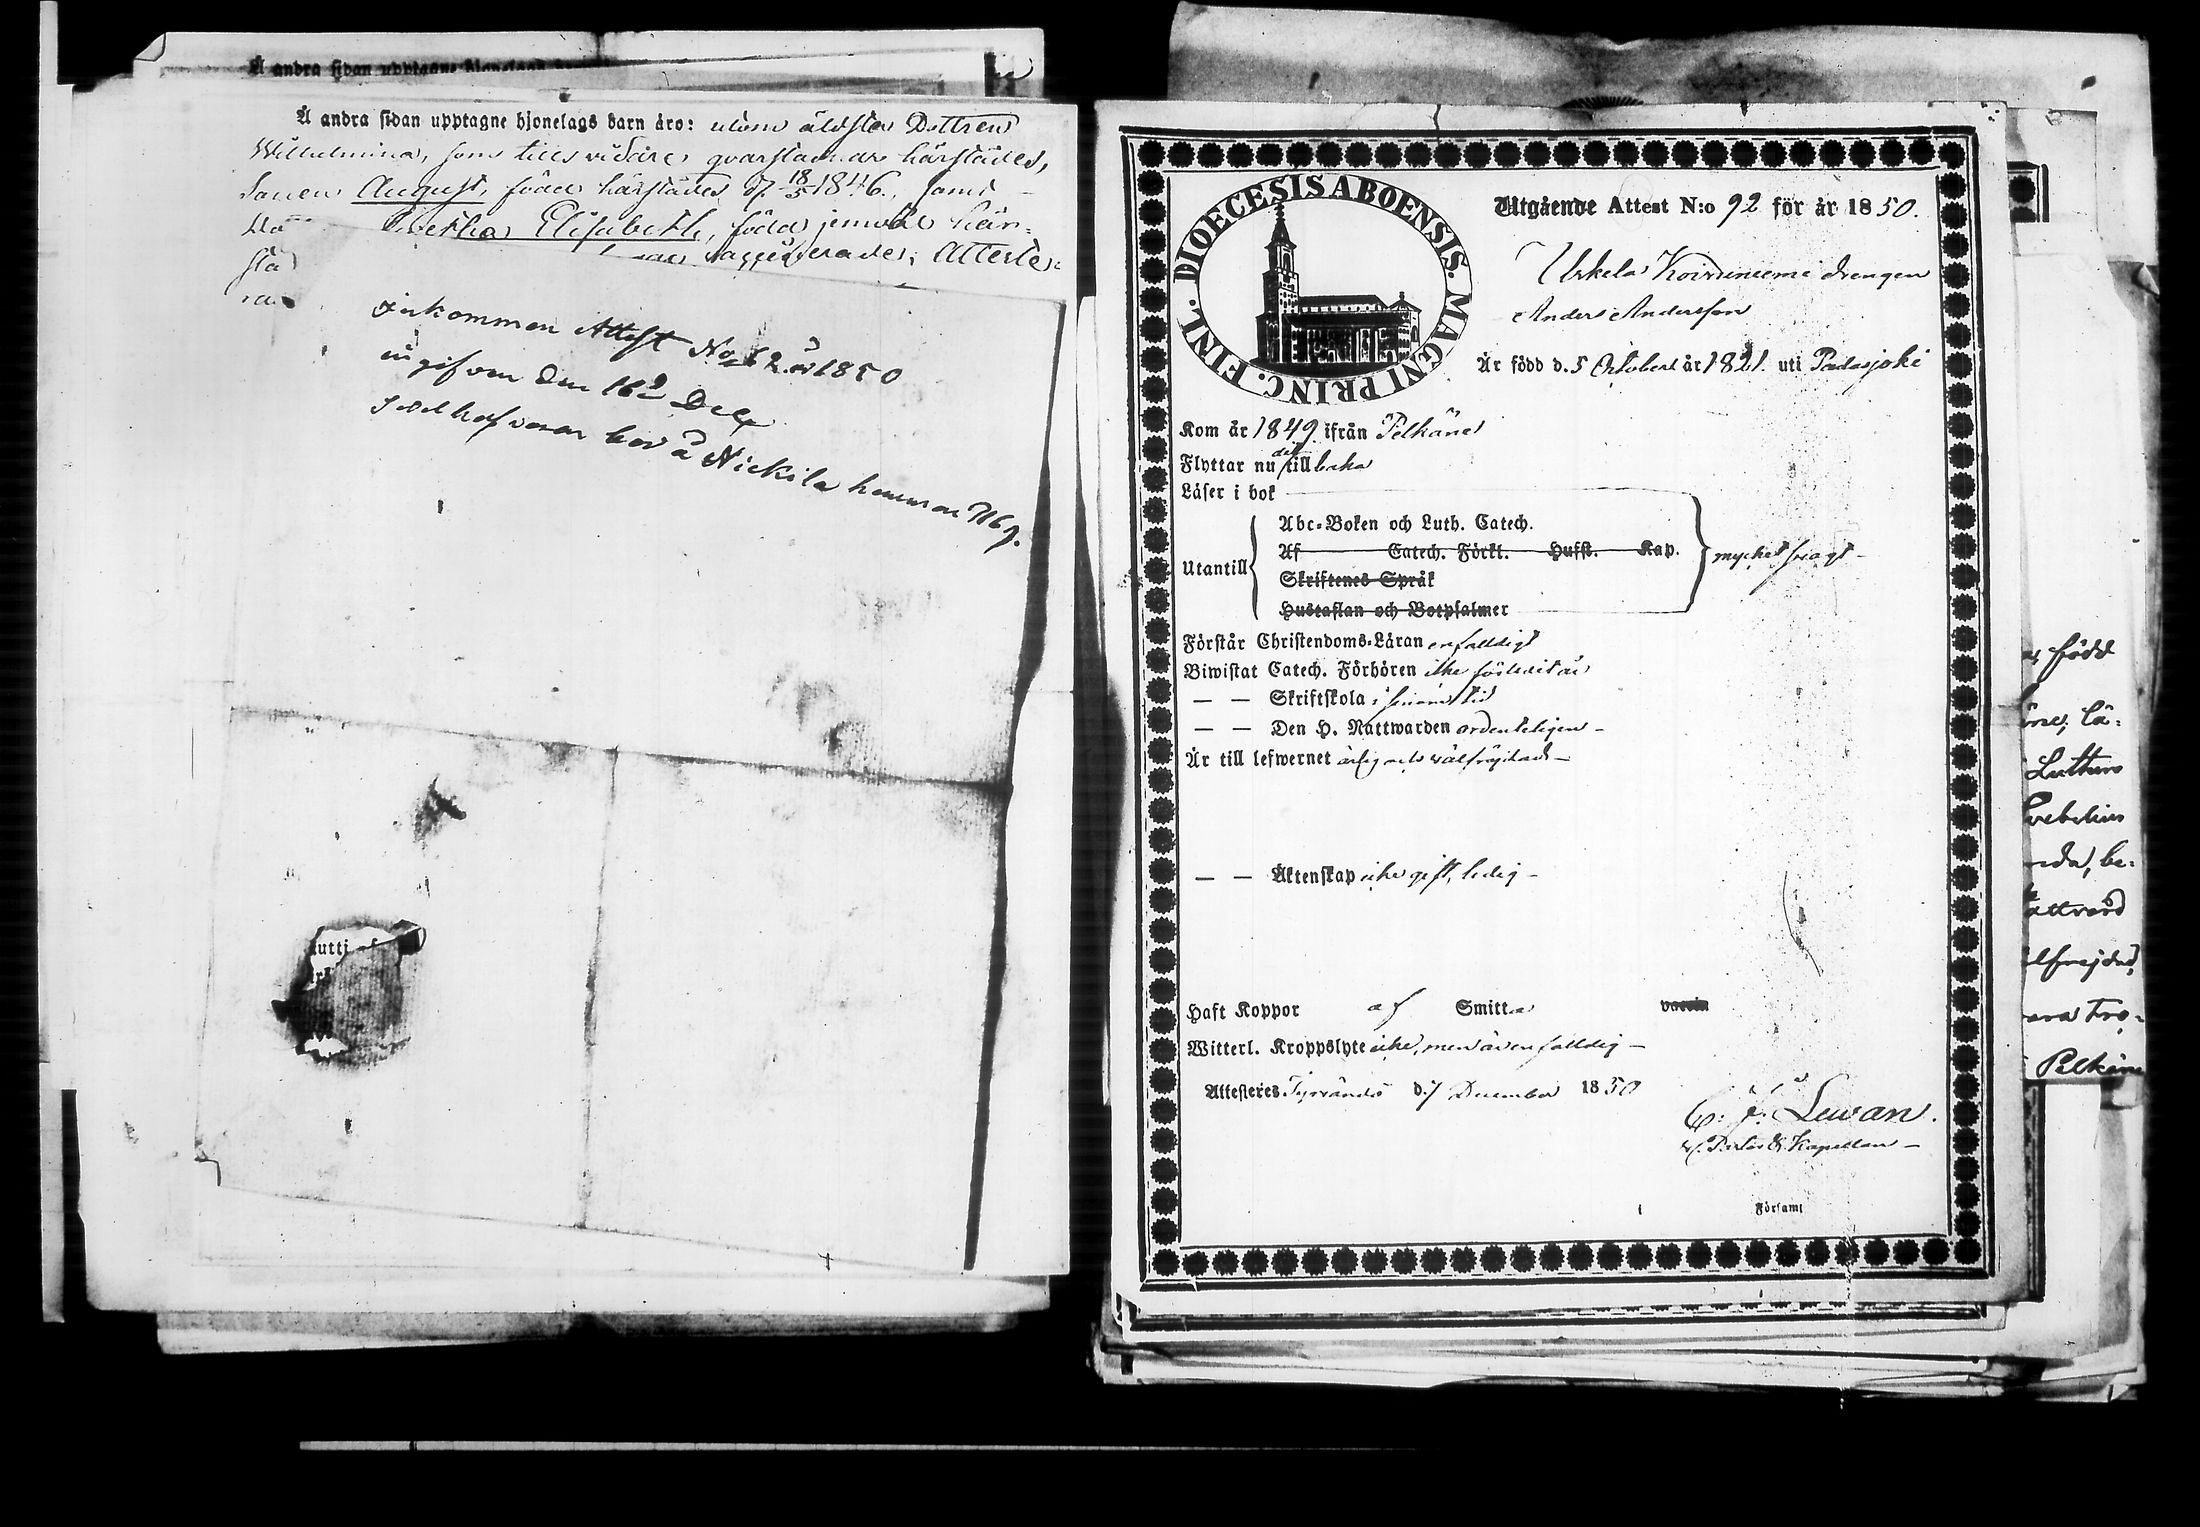 Å andra sidan upptagne hjonelags
Å andra sidan upptagne hjonelags barn äro: utom äldsta Dottren
Wilhelmina, som tills vidare qvarstadnar härstädes,
Sonen August, född härstädes d. 18/5 1846., samt
Elisabeth, född jemväl här-
stä vaccinerade; Atteste-
ra
Inkommen Attest No 62 år 1850
ingifven den 16 Dec
Sedelhafvaren bor å Nickila hemman
DIOECESIS ABOENSIS. MAGNI PRINC. FINL.
Utgående Attest N:o 92 för år 1850.
Urkela Koivuniemi drengen
Anders Andersson
Är född d. 5 Octobert år 1821. uti Padasjoki
Kom år 1849 ifrån Pelkäne
Flyttar nu dit tillbaka
Läser i bok
Utantill
Abc-Boken och Luth. Catech.
Af Catech. Förkl. Husst. Kap.
Skriftenes Språk
Hustaflan och Botpsalmer
mycket svagt
Förstår Christendoms-Läran enfalldigt
Biwistat Catech. Förhören icke förledit år
— — Skriftskola i sinom tid
— — Den H. Nattwarden ordenteligen
Är till lefwernet ärlig och välfrejdad
— — Äktenskap icke gift, ledig
Haft Koppor af Smitta vaccin
Witterl. Kroppslyte icke, men är enfalldig
Attesteres Tyrvändö d. 7 December 1850
C. J. Lewan.
Kapellan
Församl
född
Luthers
Pelkäne